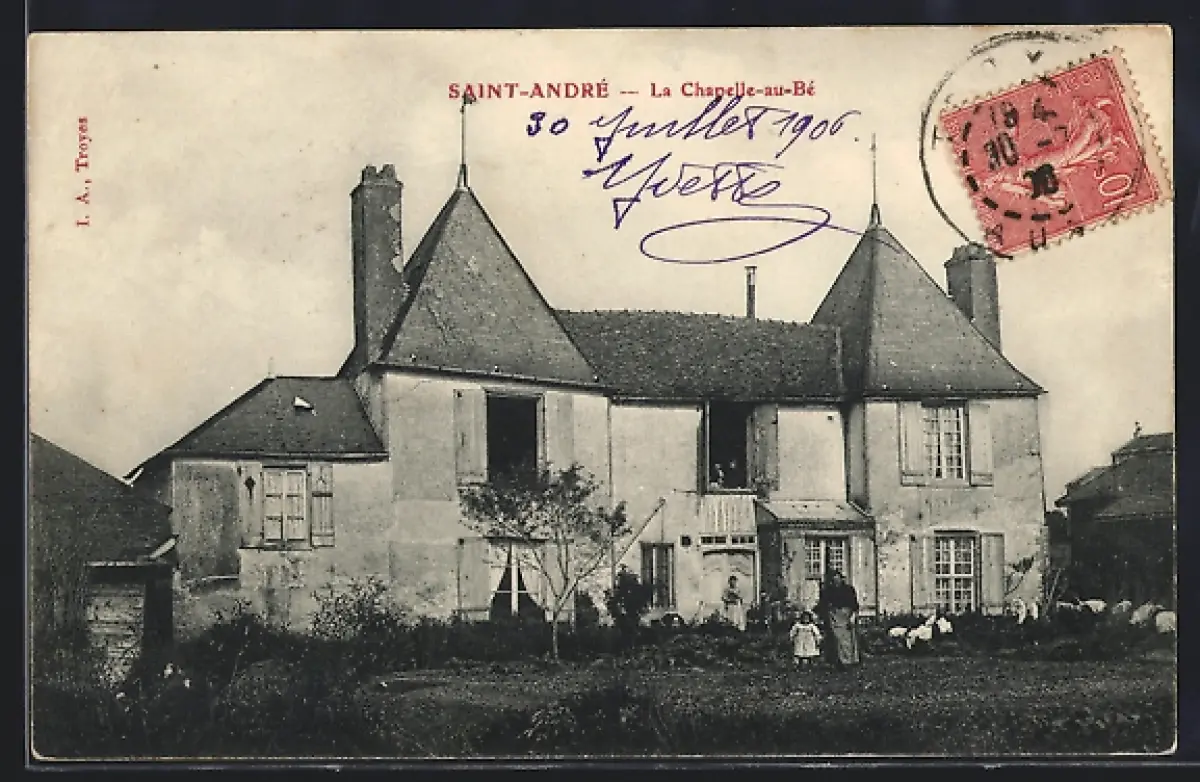 SAINT-ANDRÉ — La Chapelle-au-Bé
I. A., Troyes
30 Juillet 1906.
Yvette
10c